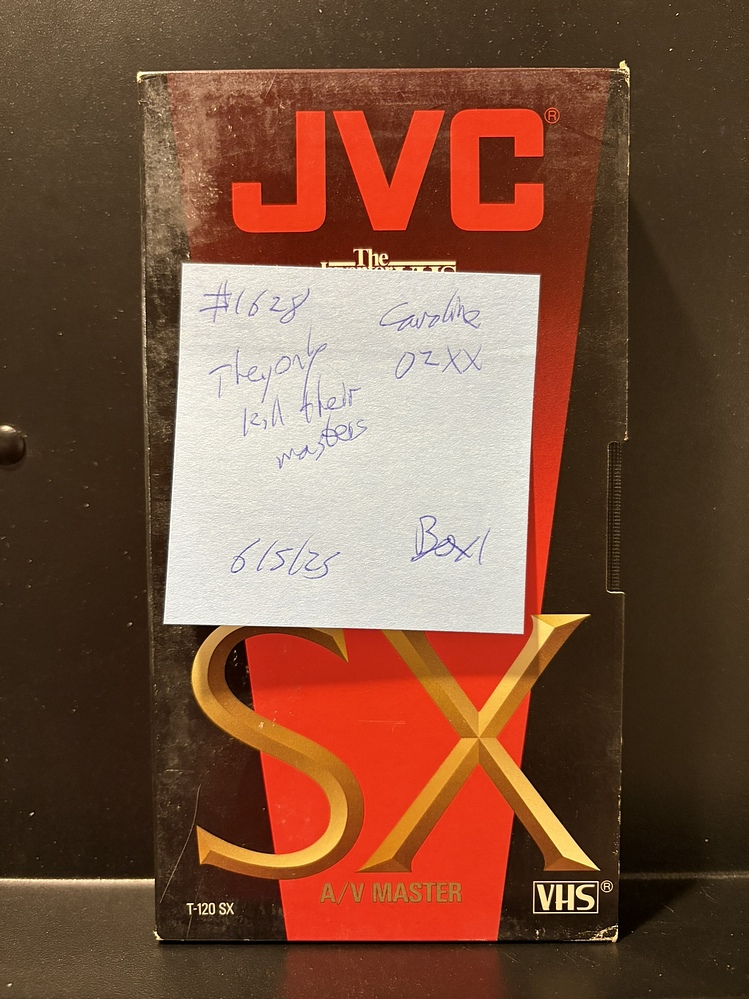 JVC®
The
#1628
Caroline
02XX
They only
kill their
masters
6/5/25
Box 1
SX
A/V MASTER
T-120 SX
VHS®